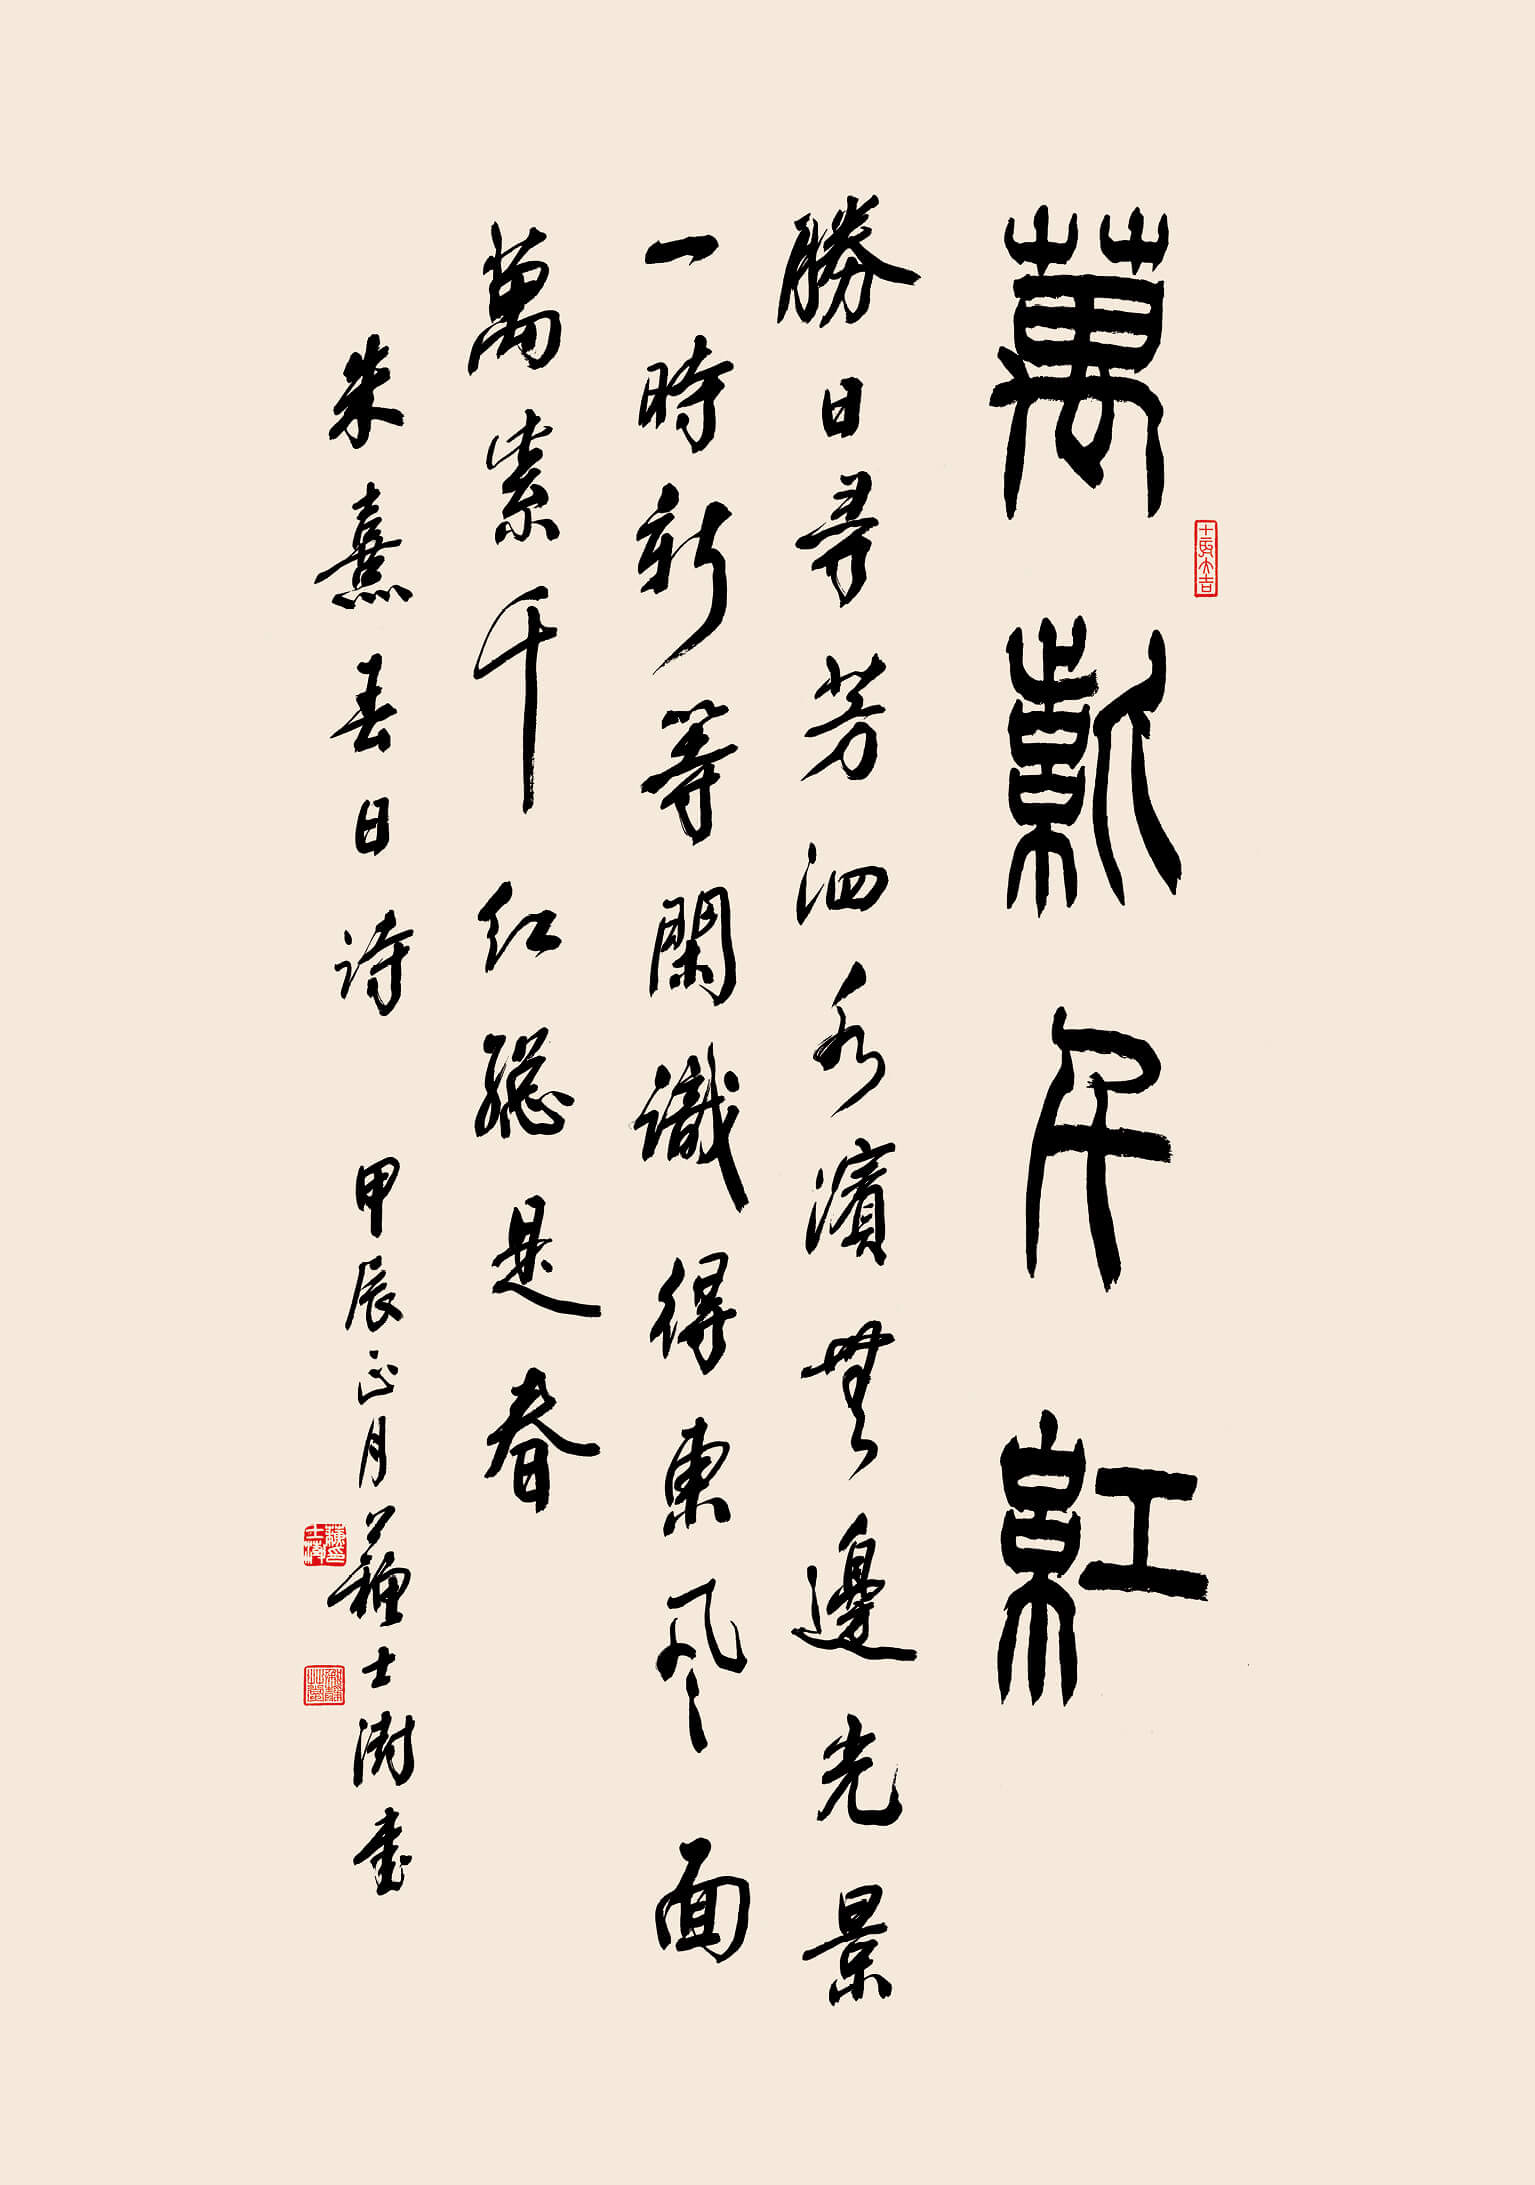 萬紫千紅
勝日尋芳泗水濱無邊光景
一時新等閑識得東風面
萬紫千红總是春
朱熹春日诗 甲辰正月蘇士澍書